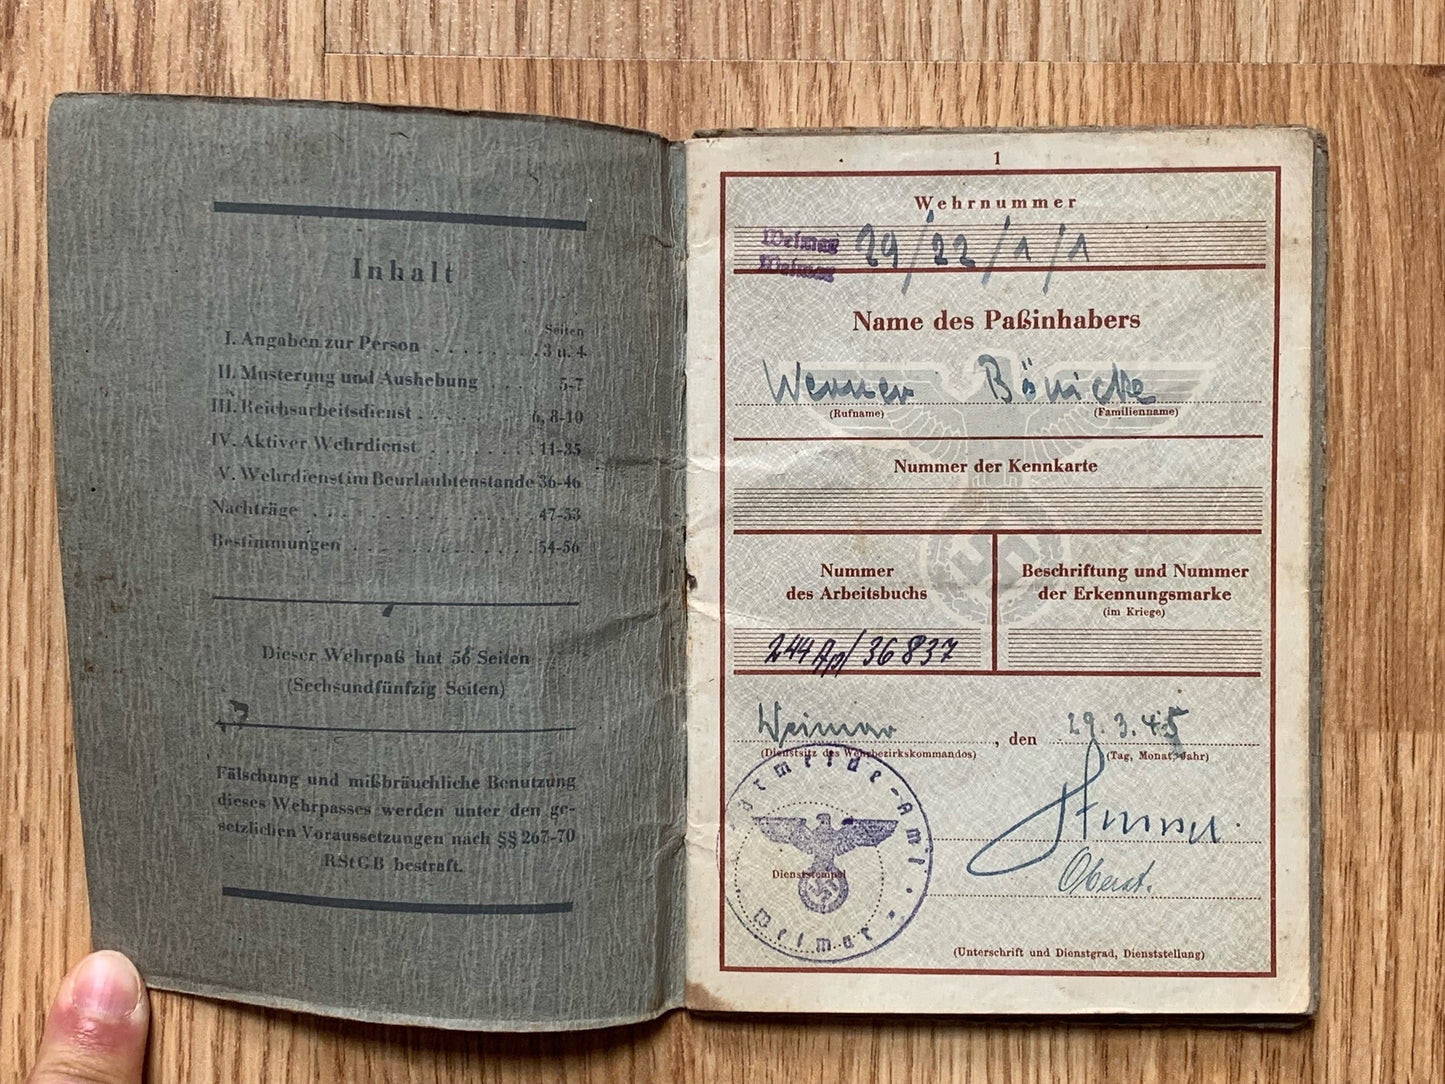 Inhalt
Seiten
I. Angaben zur Person . . . . . . . . 3 u. 4
II. Musterung und Aushebung . . . . . 5-7
III. Reichsarbeitsdienst . . . . . . . . 6, 8-10
IV. Aktiver Wehrdienst . . . . . . . . 11-35
V. Wehrdienst im Beurlaubtenstande 36-46
Nachträge . . . . . . . . . . . . 47-53
Bestimmungen . . . . . . . . . . . 54-56
Dieser Wehrpaß hat 56 Seiten
(Sechsundfünfzig Seiten)
Fälschung und mißbräuchliche Benutzung
dieses Wehrpasses werden unter den ge-
setzlichen Voraussetzungen nach §§ 267-70
RStGB bestraft.
1
Wehrnummer
Weimar 29/22/1/1
Weimar
Name des Paßinhabers
Werner Bönicke
(Rufname) (Familienname)
Nummer der Kennkarte
Nummer
des Arbeitsbuchs
Beschriftung und Nummer
der Erkennungsmarke
(im Kriege)
244 /36837
Weimar, den 29. 3. 45
(Dienstsitz des Wehrbezirkskommandos) (Tag, Monat, Jahr)
Wehrmelde-Amt
Weimar
Dienststempel
Oberst.
(Unterschrift und Dienstgrad, Dienststellung)